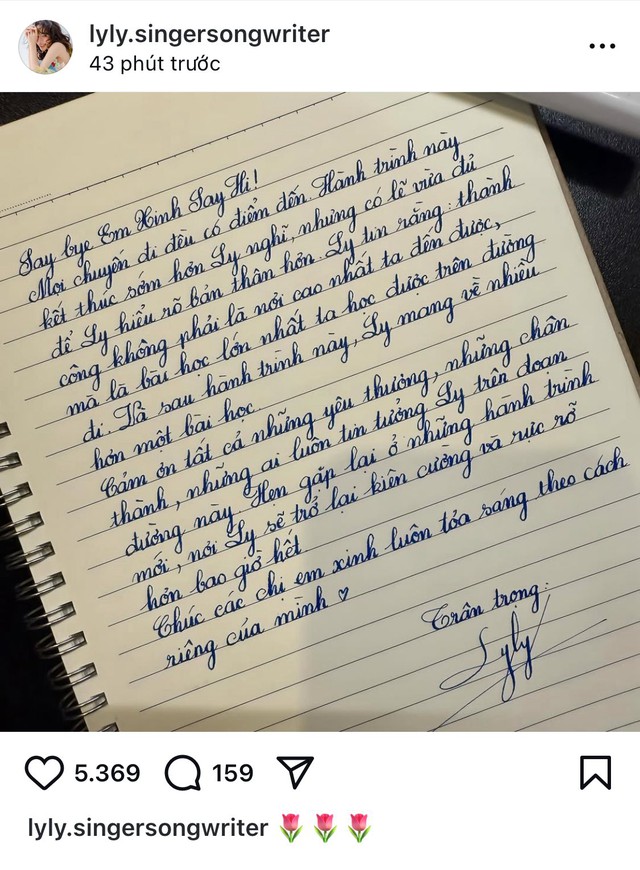 lyly.singersongwriter
43 phút trước
Say bye Em Xinh Say Hi!
Mọi chuyến đi đều có điểm đến. Hành trình này
kết thúc sớm hơn Ly nghĩ, nhưng có lẽ vừa đủ
để Ly hiểu rõ bản thân hơn. Ly tin rằng: thành
công không phải là nơi cao nhất ta đến được,
mà là bài học lớn nhất ta học được trên đường
đi. Và sau hành trình này, Ly mang về nhiều
hơn một bài học.
Cảm ơn tất cả những yêu thương, những chân
thành, những ai luôn tin tưởng Ly trên đoạn
đường này. Hẹn gặp lại ở những hành trình
mới, nơi Ly sẽ trở lại kiên cường và rực rỡ
hơn bao giờ hết
Chúc các chị em xinh luôn tỏa sáng theo cách
riêng của mình ♡
Trân trọng:
Lyly
5.369 159
lyly.singersongwriter 🌷🌷🌷